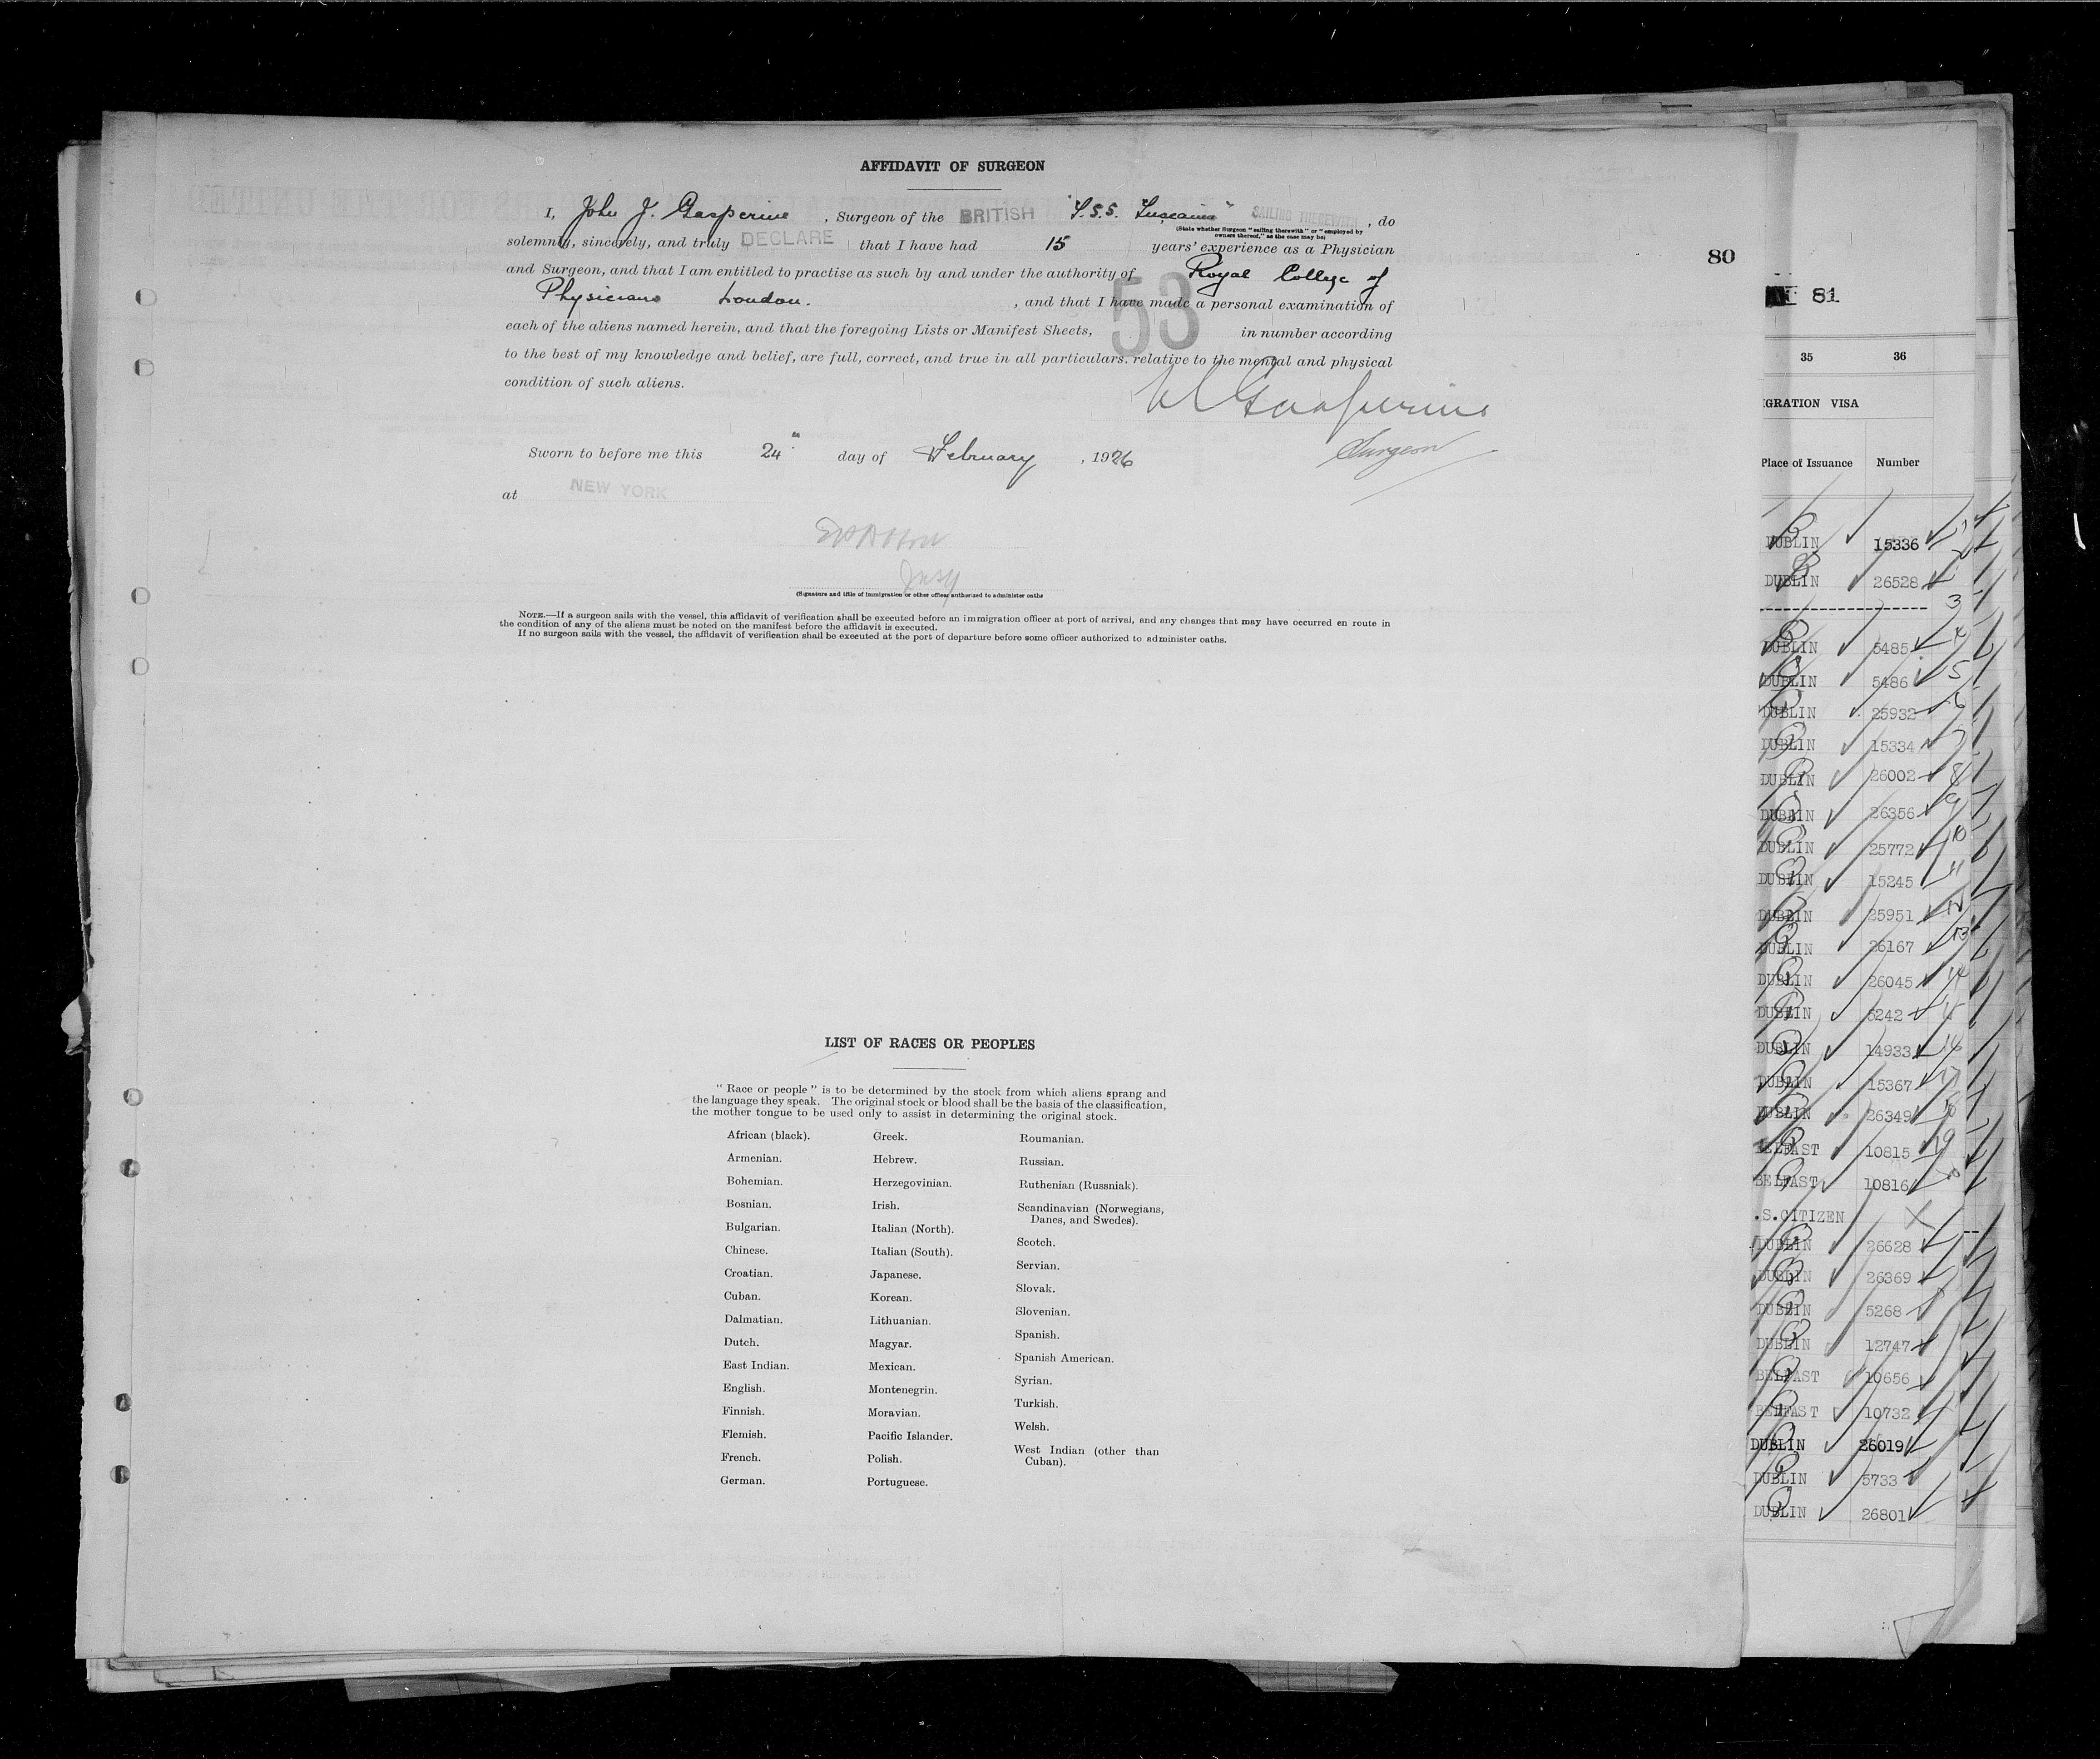 AFFIDAVIT OF SURGEON
I, John J. Gasperine , Surgeon of the BRITISH "S.S. Tuscania" SAILING THEREWITH , do
(State whether Surgeon "sailing therewith" or "employed by
owners thereof," as the case may be)
solemnly, sincerely, and truly DECLARE that I have had 15 years' experience as a Physician
and Surgeon, and that I am entitled to practise as such by and under the authority of Royal College of
Physicians London. , and that I have made a personal examination of
each of the aliens named herein, and that the foregoing Lists or Manifest Sheets, 53 in number according
to the best of my knowledge and belief, are full, correct, and true in all particulars. relative to the mental and physical
condition of such aliens.
Gasperine
Surgeon
Sworn to before me this 24" day of February , 1926
at NEW YORK
(Signature and title of immigration or other officer authorized to administer oaths
NOTE.—If a surgeon sails with the vessel, this affidavit of verification shall be executed before an immigration officer at port of arrival, and any changes that may have occurred en route in
the condition of any of the aliens must be noted on the manifest before the affidavit is executed.
If no surgeon sails with the vessel, the affidavit of verification shall be executed at the port of departure before some officer authorized to administer oaths.
LIST OF RACES OR PEOPLES
" Race or people " is to be determined by the stock from which aliens sprang and
the language they speak. The original stock or blood shall be the basis of the classification,
the mother tongue to be used only to assist in determining the original stock.
African (black).
Armenian.
Bohemian.
Bosnian.
Bulgarian.
Chinese.
Croatian.
Cuban.
Dalmatian.
Dutch.
East Indian.
English.
Finnish.
Flemish.
French.
German.
Greek.
Hebrew.
Herzegovinian.
Irish.
Italian (North).
Italian (South).
Japanese.
Korean.
Lithuanian.
Magyar.
Mexican.
Montenegrin.
Moravian.
Pacific Islander.
Polish.
Portuguese.
Roumanian.
Russian.
Ruthenian (Russniak).
Scandinavian (Norwegians,
Danes, and Swedes).
Scotch.
Servian.
Slovak.
Slovenian.
Spanish.
Spanish American.
Syrian.
Turkish.
Welsh.
West Indian (other than
Cuban).
80
81
35 36
IGRATION VISA
Place of Issuance Number
DUBLIN 15336
DUBLIN 26528
3
DUBLIN 5485 4
DUBLIN 5486 5
DUBLIN 25932 6
DUBLIN 15334 7
DUBLIN 26002 8
DUBLIN 26356 9
DUBLIN 25772 10
DUBLIN 15245 11
DUBLIN 25951 12
DUBLIN 26167 13
DUBLIN 26045 14
DUBLIN 5242 15
DUBLIN 14933 16
DUBLIN 15367 17
DUBLIN 26349 18
BELFAST 10815 19
BELFAST 10816
.S.CITIZEN
DUBLIN 26628
DUBLIN 26369
DUBLIN 5268
DUBLIN 12747
BELFAST 10656
BELFAST 10732
DUBLIN 26019
DUBLIN 5733
DUBLIN 26801